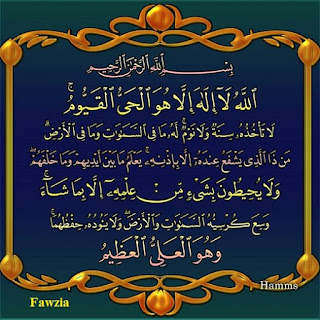 بِسْمِ ٱللَّهِ ٱلرَّحْمَٰنِ ٱلرَّحِيمِ
ٱللَّهُ لَآ إِلَٰهَ إِلَّا هُوَ ٱلْحَىُّ ٱلْقَيُّومُ ۚ
لَا تَأْخُذُهُۥ سِنَةٌ وَلَا نَوْمٌ ۚ لَّهُۥ مَا فِى ٱلسَّمَٰوَٰتِ وَمَا فِى ٱلْأَرْضِ ۗ
مَن ذَا ٱلَّذِى يَشْفَعُ عِندَهُۥٓ إِلَّا بِإِذْنِهِۦ ۚ يَعْلَمُ مَا بَيْنَ أَيْدِيهِمْ وَمَا خَلْفَهُمْ ۖ
وَلَا يُحِيطُونَ بِشَىْءٍ مِّنْ عِلْمِهِۦٓ إِلَّا بِمَا شَآءَ ۚ
وَسِعَ كُرْسِيُّهُ ٱلسَّمَٰوَٰتِ وَٱلْأَرْضَ ۖ وَلَا يَـُٔودُهُۥ حِفْظُهُمَا ۚ
وَهُوَ ٱلْعَلِىُّ ٱلْعَظِيمُ
Hamms
Fawzia